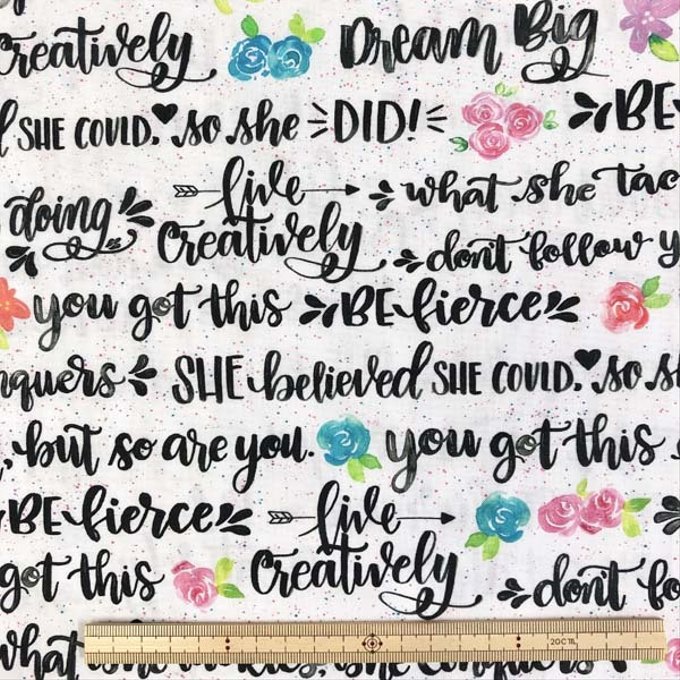 Creatively Dream Big
SHE COULD, so she DID! BE
doing live Creatively what she tac
don't follow y
you got this BE fierce
nquers SHE believed SHE COULD, so s
, but so are you. you got this
BE fierce live Creatively
got this don't fo
what she tackles, she conquers